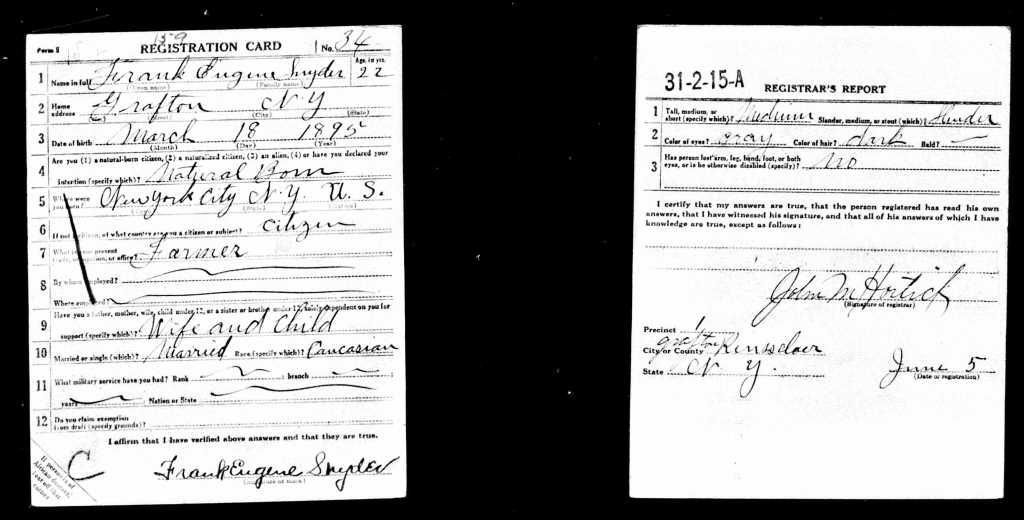 Form 1 159 REGISTRATION CARD No. 34
1 Name in full Frank Eugene Snyder Age, in yrs. 22
(Given name) (Family name)
2 Home address Grafton N Y
(No.) (Street) (City) (State)
3 Date of birth March 18 1895
(Month) (Day) (Year)
4 Are you (1) a natural-born citizen, (2) a naturalized citizen, (3) an alien, (4) or have you declared your
intention (specify which)? Natural Born
5 Where were you born? New York City N.Y. U. S.
6 If not a citizen, of what country are you a citizen or subject? Citizen
7 What is your present trade, occupation, or office? Farmer
8 By whom employed?
Where employed?
9 Have you a father, mother, wife, child under 12, or a sister or brother under 12, solely dependent on you for
support (specify which)? Wife and Child
10 Married or single (which)? Married Race (specify which)? Caucasian
11 What military service have you had? Rank branch
years Nation or State
12 Do you claim exemption
from draft (specify grounds)?
I affirm that I have verified above answers and that they are true.
C Frank Eugene Snyder
If person is of
African descent,
tear off this
corner
31-2-15-A REGISTRAR'S REPORT
1 Tall, medium, or
short (specify which)? Medium Slender, medium, or stout (which)? Slender
2 Color of eyes? gray Color of hair? dark Bald? —
3 Has person lost arm, leg, hand, foot, or both
eyes, or is he otherwise disabled (specify)? No
I certify that my answers are true, that the person registered has read his own
answers, that I have witnessed his signature, and that all of his answers of which I have
knowledge are true, except as follows:
John M
(Signature of registrar)
Precinct 1
City or County Grafton
State N Y. June 5
(Date of registration)